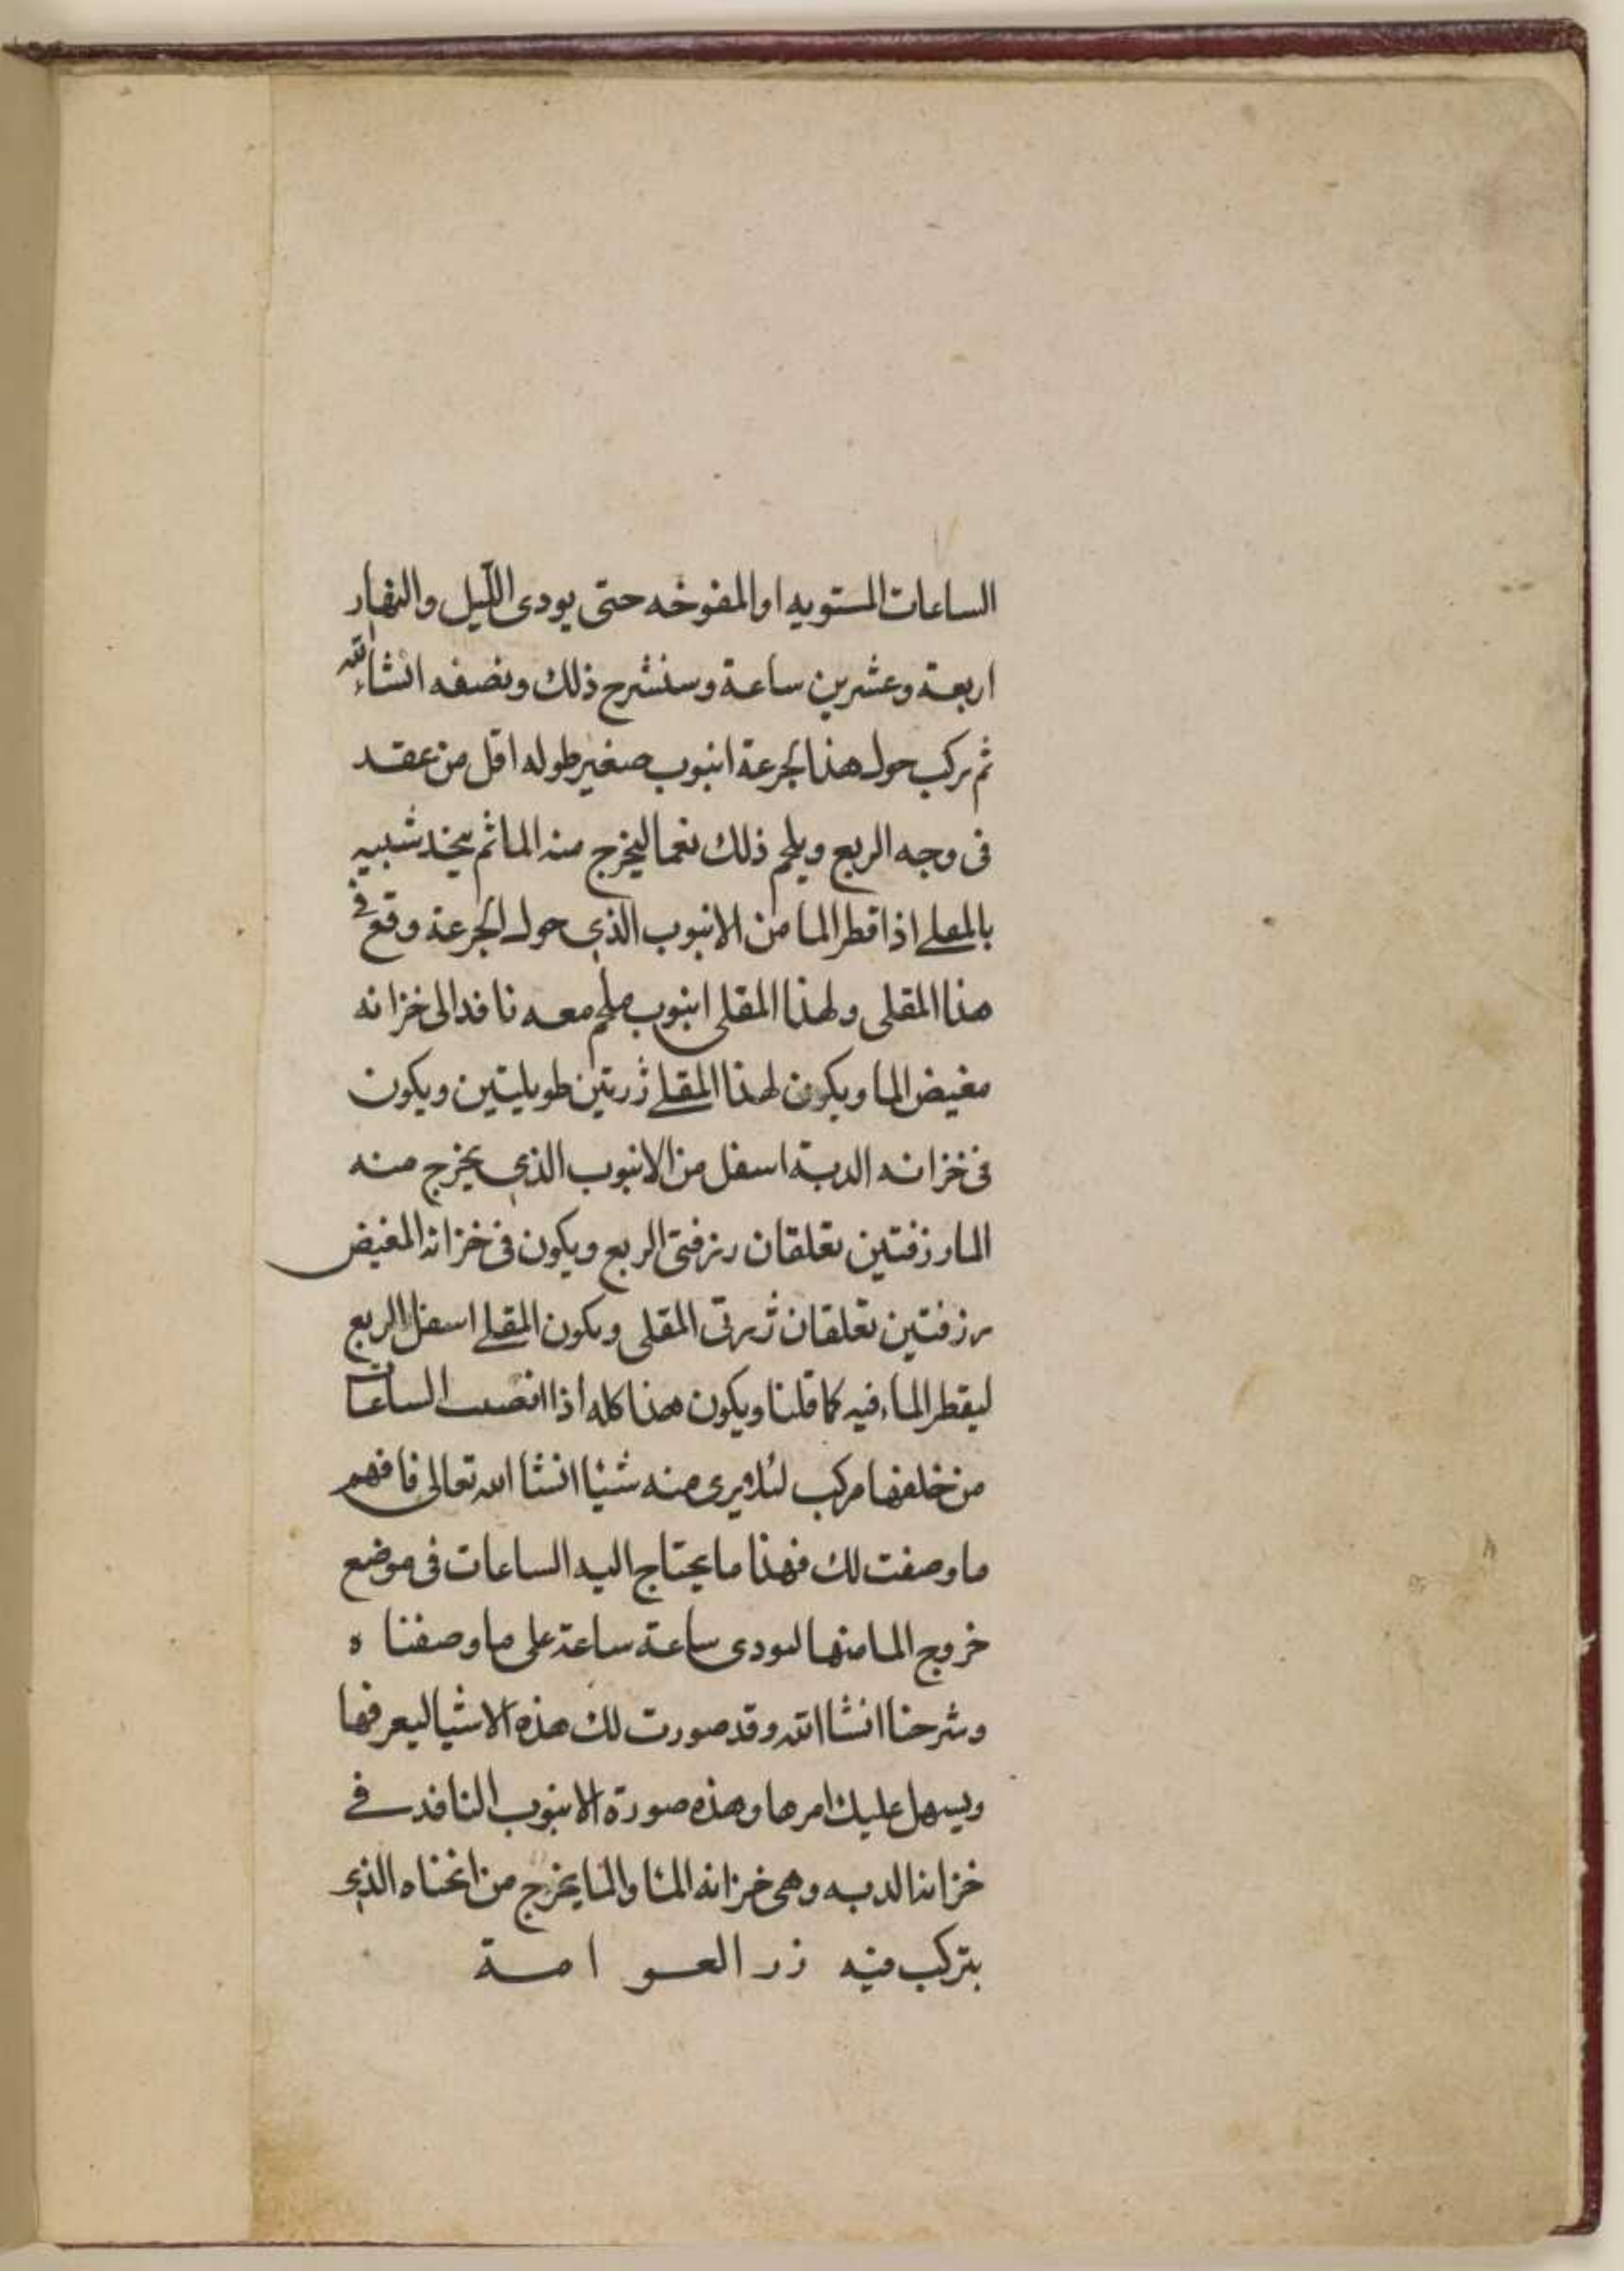 الساعات المستويه او المفوخه حتى يودى الليل والنهار
اربعة وعشرين ساعة وسنشرح ذلك ونصفه انشاء الله
ثم يركب حول هذا الجزعة انبوب صغير طوله اقل من عقد
فى وجه الربع ويلحم ذلك نعما ليخرج منه الما ثم يتخذ شبيه
بالمعلى اذا قطر الما من الانبوب الذي حول الجزعة وقع في
هذا المقلى ولهذا المقلى انبوب ملحم معه نافذ الى خزانه
مغيض الما ويكون لهذا المقلى زرتين طويلتين ويكون
فى خزانه الدبة اسفل من الانبوب الذي يخرج منه
الما رزفتين تعلقان رزفتى الربع ويكون فى خزانة المغيض
رزفتين تعلقان زرتى المقلى ويكون المقلى اسفل الربع
ليقطر الماء فيه كما قلنا ويكون هذا كله اذا انصبت الساعات
من خلفها مركب لئلا يرى منه شئيا انشا الله تعالى فافهم
ما وصفت لك فهذا ما يحتاج اليه الساعات فى موضع
خروج الما منها ليودى ساعة ساعة على ما وصفنا ه
وشرحنا انشا الله وقد صورت لك هذه الاشيا ليعرفها
ويسهل عليك امرها وهذه صورة الانبوب النافد في
خزانة الدبه وهى خزانه الما والما يخرج من انحناه الذي
يتركب فيه زر العوامة